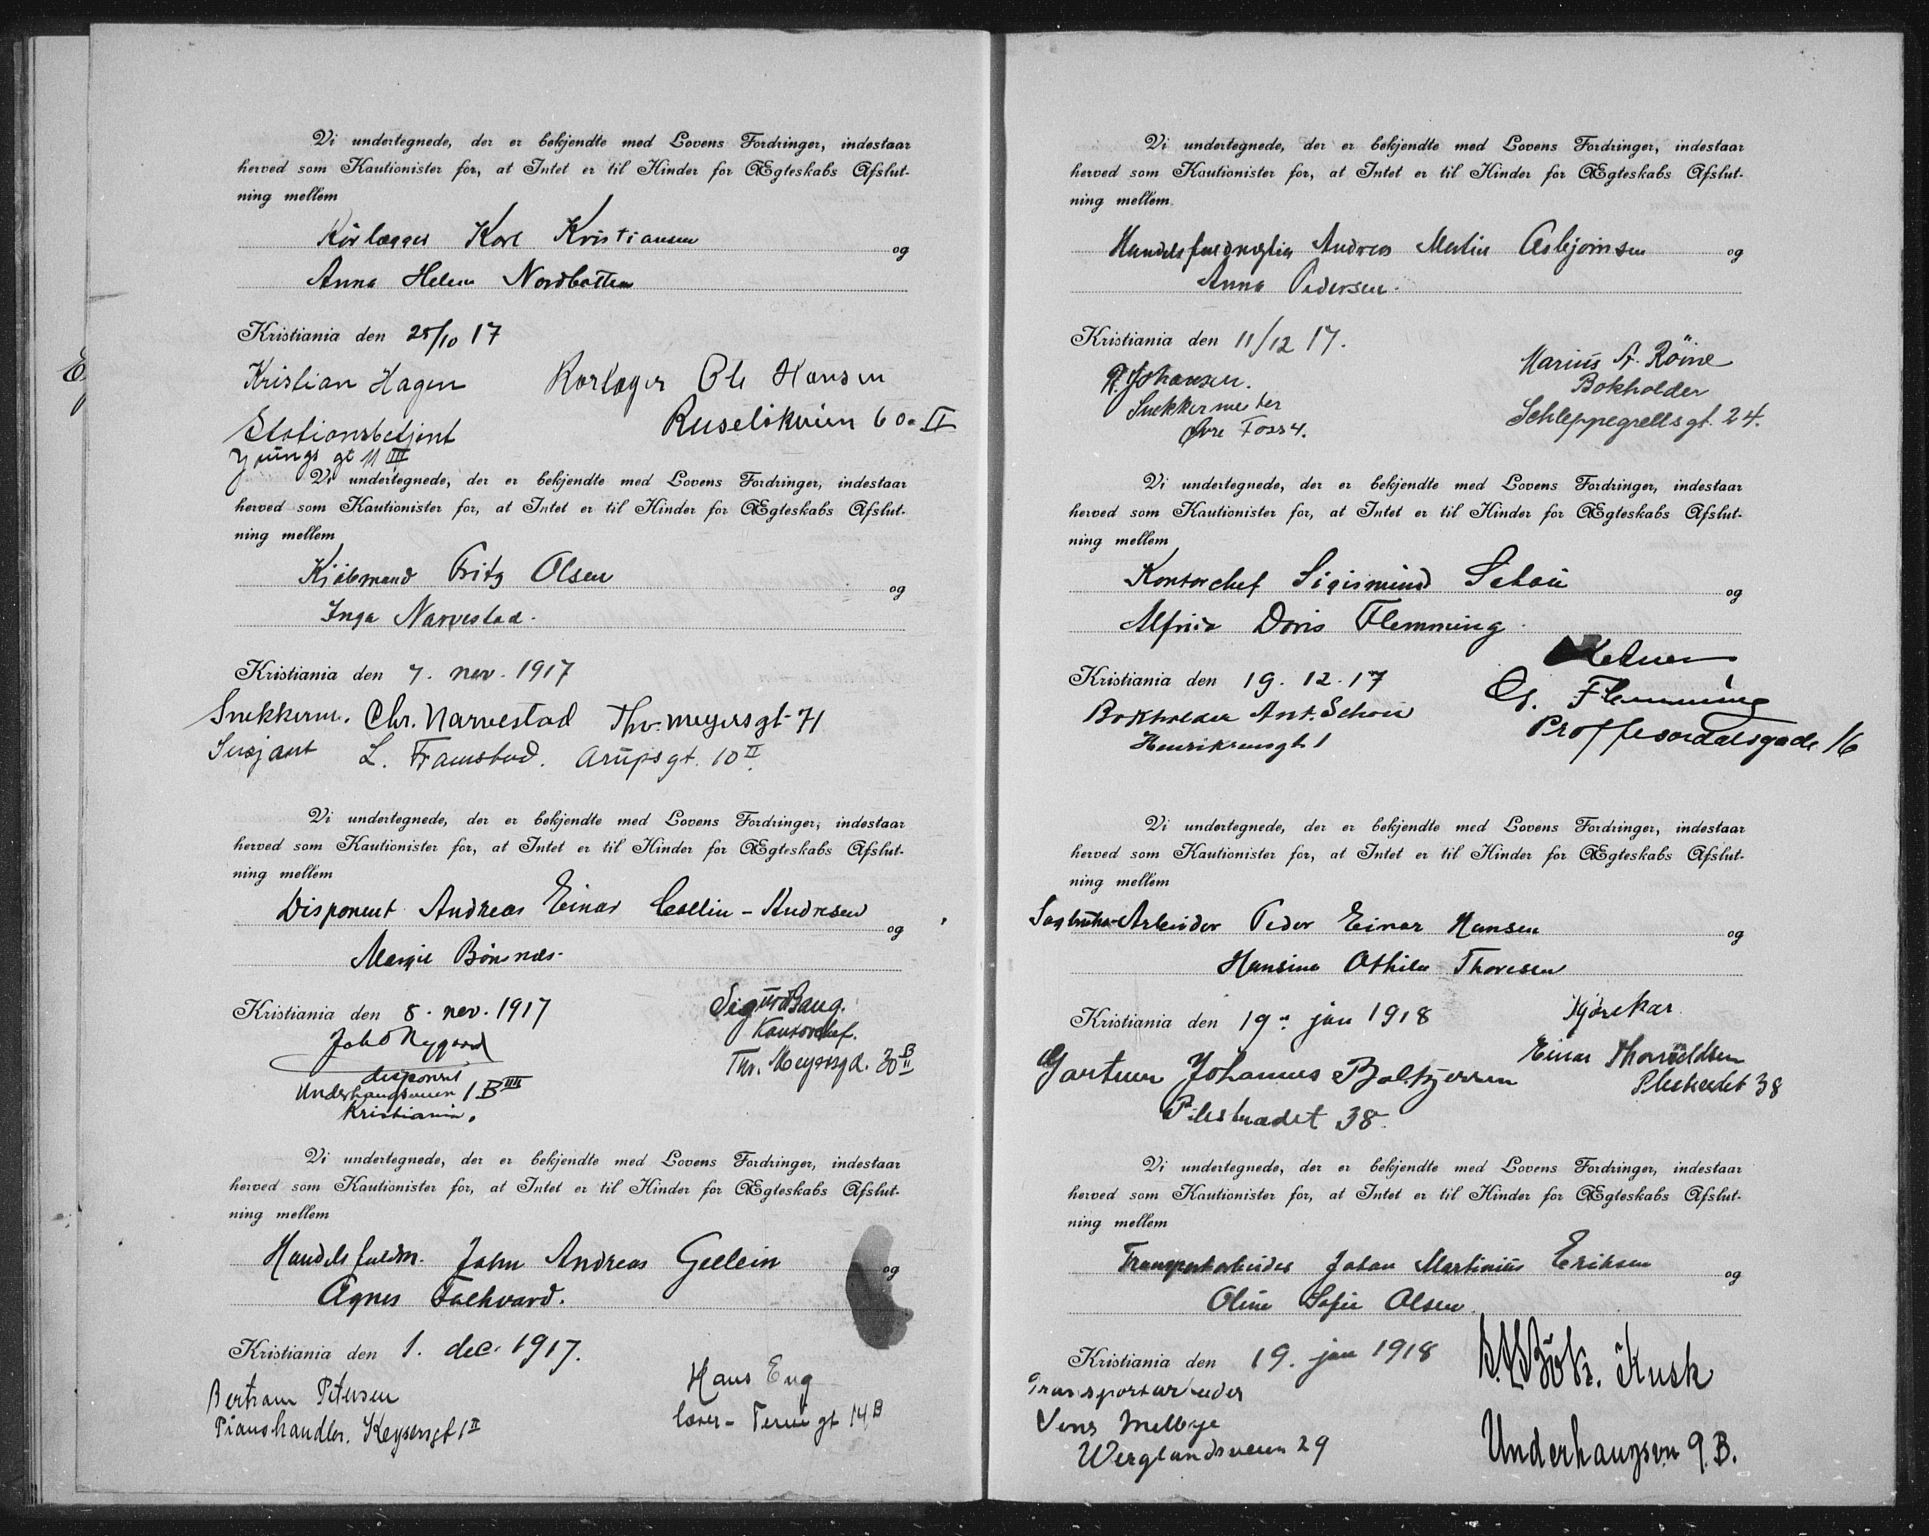 Vi undertegnede, der er bekjendte med Lovens Fordringer, indestaar
herved som Kautionister for, at Intet er til Hinder for Ægteskabs Afslut-
ning mellem
Rørlægger Karl Kristiansen og
Anna Helene Nordbotten
Kristiania den 25/10 17
Kristian Hagen Rørlæger Ole Hansen
Stationsbetjent Ruseløkveien 60. II
Youngs gt 11 III
Vi undertegnede, der er bekjendte med Lovens Fordringer, indestaar
herved som Kautionister for, at Intet er til Hinder for Ægteskabs Afslut-
ning mellem
Kjøbmand Fritz Olsen og
Inga Narvestad.
Kristiania den 7. nov. 1917
Snekkerm. Chr. Narvestad Thv. meyersgt 71
L. Framstad. Arupsgt. 10 II
Vi undertegnede, der er bekjendte med Lovens Fordringer, indestaar
herved som Kautionister for, at Intet er til Hinder for Ægteskabs Afslut-
ning mellem
Disponent Andreas Einar Collin-Andresen og
Margit Bønsnæs.
Kristiania den 8. nov. 1917 Sigurd Baug.
Joh. Nygaard Kontorchef.
disponent Thv. Meyersgd. 30 B II
Underhaugsveien 1 B IIII
Kristiania.
Vi undertegnede, der er bekjendte med Lovens Fordringer, indestaar
herved som Kautionister for, at Intet er til Hinder for Ægteskabs Afslut-
ning mellem
Handelsfuldm. John Andreas Gellein og
Agnes Folkvard.
Kristiania den 1. dec. 1917.
Bertram Petersen Hans Eng
Pianohandler. Keysersgt 1 II gt 14 B
Vi undertegnede, der er bekjendte med Lovens Fordringer, indestaar
herved som Kautionister for, at Intet er til Hinder for Ægteskabs Afslut-
ning mellem
Handelsfuldmægtig Andreas Martin Asbjørnsen og
Anna Pedersen.
Kristiania den 11/12 17.
Johansen. Marius A. Röine
Snekkermester Bokholder
Øvre Foss 4. Schleppegrellsgt. 24.
Vi undertegnede, der er bekjendte med Lovens Fordringer, indestaar
herved som Kautionister for, at Intet er til Hinder for Ægteskabs Afslut-
ning mellem
Kontorchef Sigismund Schou og
Alfrida Doris Flemming.
Kristiania den 19. 12. 17
Bokholder Ant. Schou Flemming
Henriksensgt 1 Proffesordalsgade 16
Vi undertegnede, der er bekjendte med Lovens Fordringer, indestaar
herved som Kautionister for, at Intet er til Hinder for Ægteskabs Afslut-
ning mellem
Sagbruks-Arbeider Peder Einar Hansen og
Hansine Othilie Thoresen
Kristiania den 19. jan 1918 Kjørekar
Einar Thorvaldsen
Gartner Johannes Baltzersen Pilestredet 38
Pilestrædet 38.
Vi undertegnede, der er bekjendte med Lovens Fordringer, indestaar
herved som Kautionister for, at Intet er til Hinder for Ægteskabs Afslut-
ning mellem
Transportarbeider Johan Martinius Eriksen og
Oline Sofie Olsen.
Kristiania den 19. jan 1918 Kusk
Transportarbeider
Jens Melbye
Werglandsveien 29 Underhaugsvn 9. B.